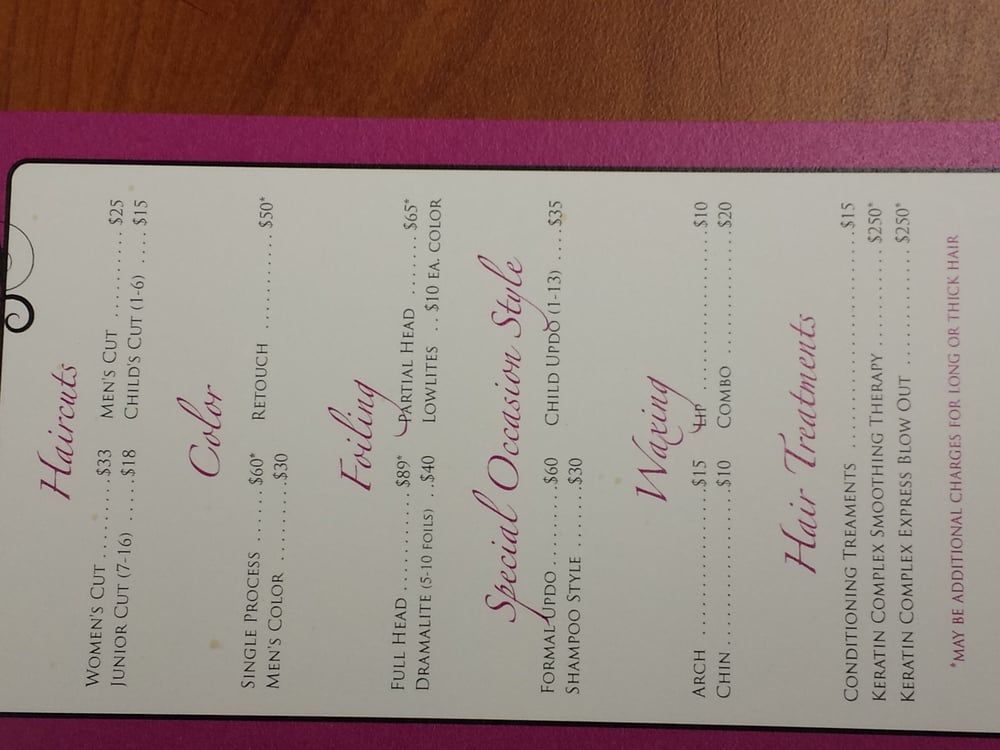 Haircuts
WOMEN'S CUT ........ $33 MEN'S CUT .......... $25
JUNIOR CUT (7-16) .... $18 CHILD'S CUT (1-6) .... $15
Color
SINGLE PROCESS ..... $60* RETOUCH ........... $50*
MEN'S COLOR ......... $30
Foiling
FULL HEAD ........... $89* PARTIAL HEAD ....... $65*
DRAMALITE (5-10 FOILS) .. $40 LOWLITES .. $10 EA. COLOR
Special Occasion Style
FORMAL UPDO ........ $60 CHILD UPDO (1-13) .... $35
SHAMPOO STYLE ....... $30
Waxing
ARCH .............. $15 LIP ................ $10
CHIN .............. $10 COMBO ............. $20
Hair Treatments
CONDITIONING TREAMENTS ...................... $15
KERATIN COMPLEX SMOOTHING THERAPY ........... $250*
KERATIN COMPLEX EXPRESS BLOW OUT ............ $250*
*MAY BE ADDITIONAL CHARGES FOR LONG OR THICK HAIR